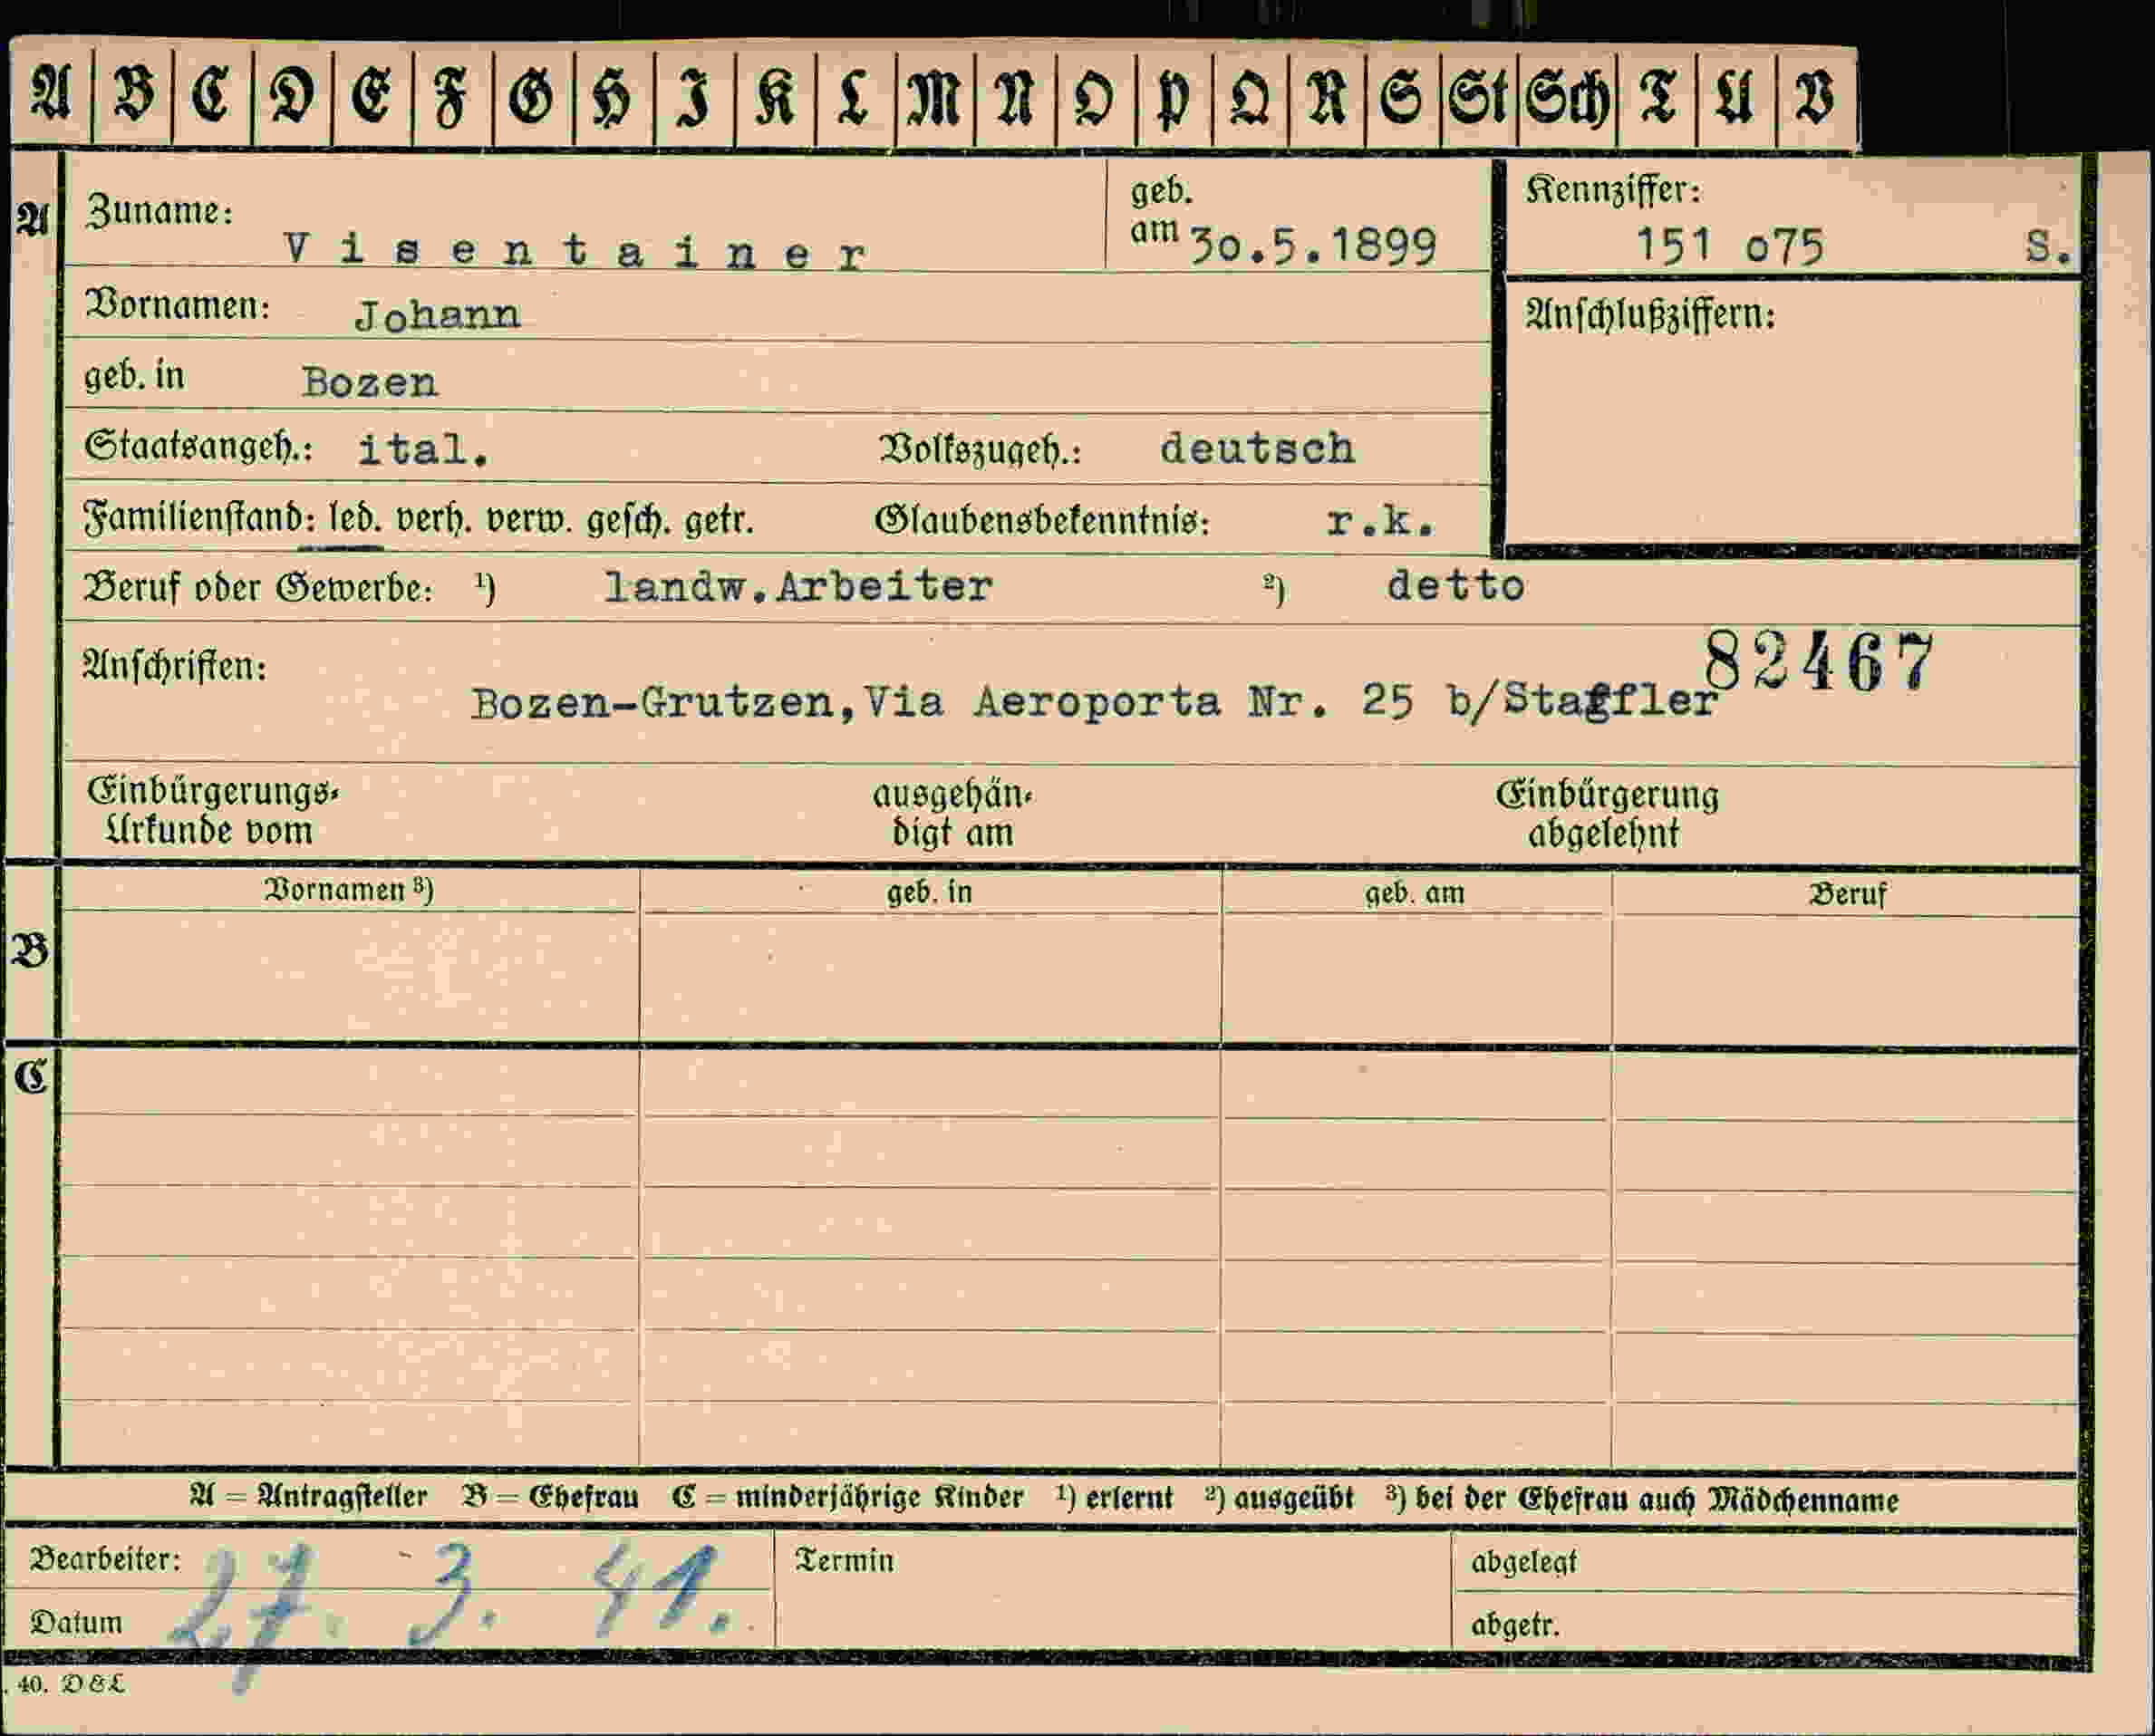 A B C D E F G H I K L M N O P Q R S St Sch T U V
A Zuname: Visentainer geb. am 30.5.1899 Kennziffer: 151 o75 S.
Vornamen: Johann Anschlußziffern:
geb. in Bozen
Staatsangeh.: ital. Volkszugeh.: deutsch
Familienstand: led. verh. verw. gesch. getr. Glaubensbekenntnis: r.k.
Beruf oder Gewerbe: 1) landw.Arbeiter 2) detto
82467
Anschriften: Bozen-Grutzen, Via Aeroporta Nr. 25 b/Staffler
Einbürgerungs- ausgehän- Einbürgerung
Urkunde vom digt am abgelehnt
Vornamen 3) geb. in geb. am Beruf
B
C
A = Antragsteller B = Ehefrau C = minderjährige Kinder 1) erlernt 2) ausgeübt 3) bei der Ehefrau auch Mädchenname
Bearbeiter: Termin abgelegt
27. 3. 41.
Datum abgetr.
40. D&L